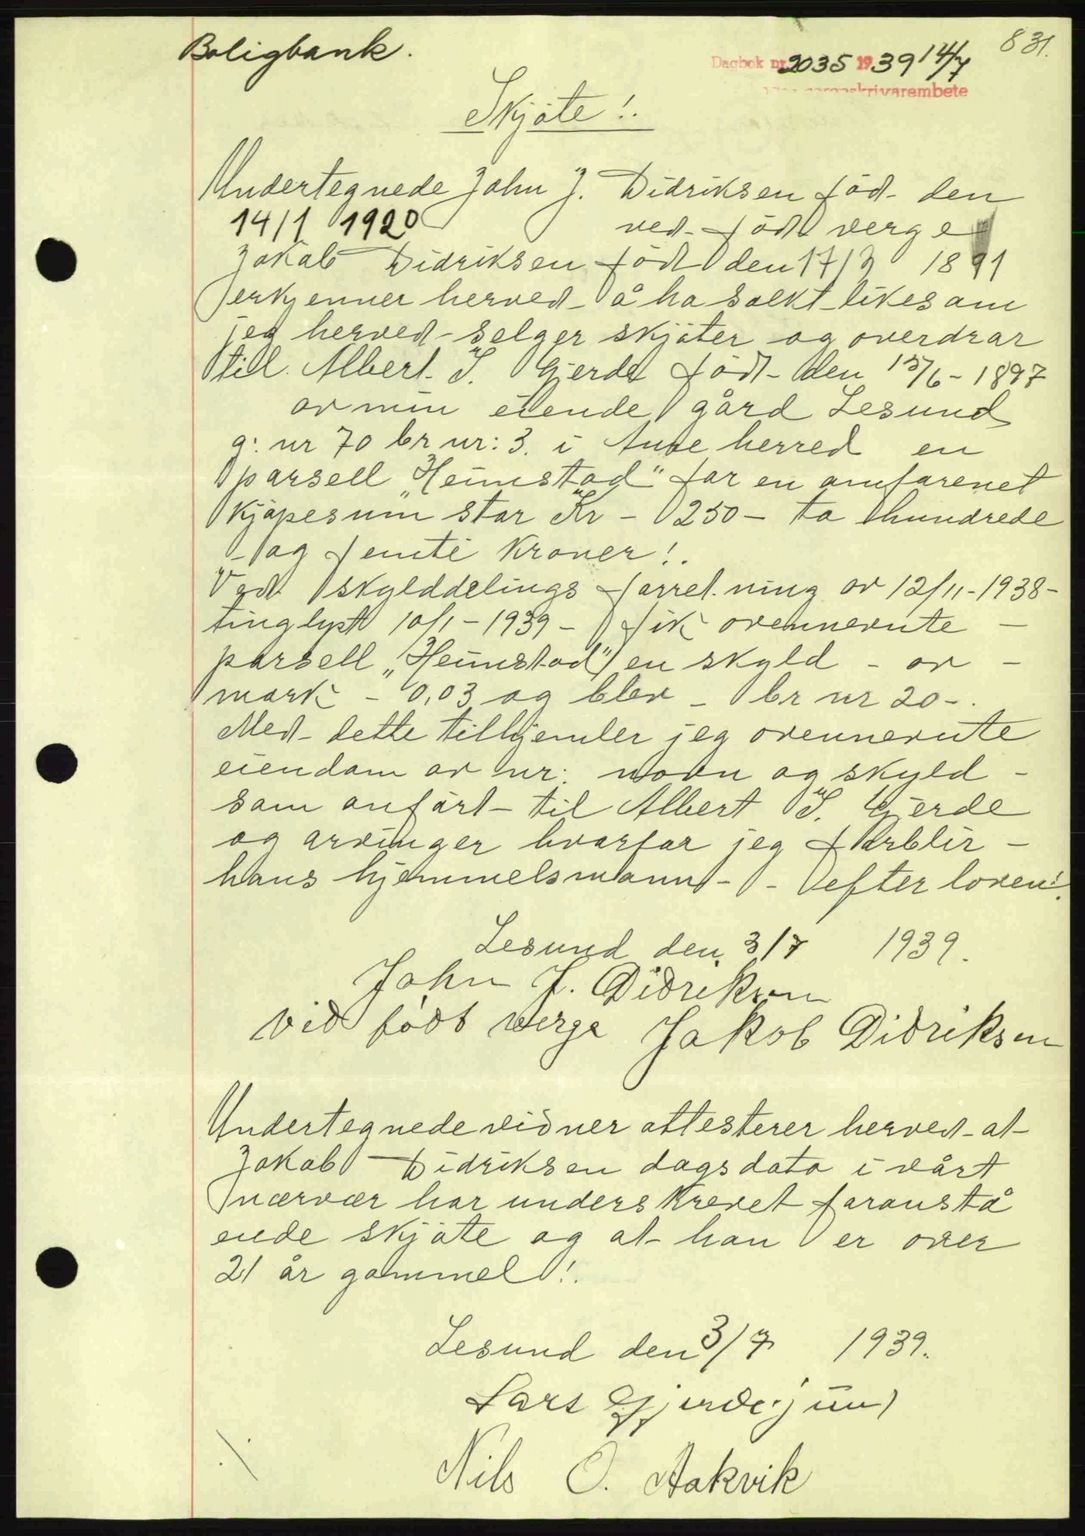 Boligbank.
831.
Dagbok nr. 2035 1939 14/7
sorenskrivarembete
Skjøte!.
Undertegnede John J. Didriksen född den
14/1 1920 ved född verge
Jakob Didriksen född den 17/3 1891
erkjenner herved å ha solkt likesom
jeg herved selger skjöter og overdrar
til Albert S. Gjerde född den 15/6-1897
av min eiende gård Lesund
g: nr 70 br nr: 3. i Aure herred en
parsell "Heimstad" for en omforenet
kjöpesum stor Kr - 250 - to hundrede
- og femti Kroner!.
Ved skylddelings forretning av 12/11-1938-
tinglyst 10/1-1939- fik ovennevnte -
parsell "Heimstad" en skyld - av -
mark - 0,03 og blev - br nr 20-.
Med dette tilhjemler jeg ovennevnte
eiendom av nr: navn og skyld -
som anfört til Albert S. Gjerde
og arvinger hvorfor jeg forblir -
hans hjemmelsmann - - efter loven!.
Lesund den 3/7 1939.
John J. Didriksen
vid födt verge Jakob Didriksen
Undertegnede vidner attesterer herved at
Jakob Didriksen dagsdato i vårt
nærvær har underskrevet foranstå
ende skjöte og at han er over
21 år gammel!.
Lesund den 3/7 1939.
Lars Gjerde jun)
Nils O. Aakvik
./.